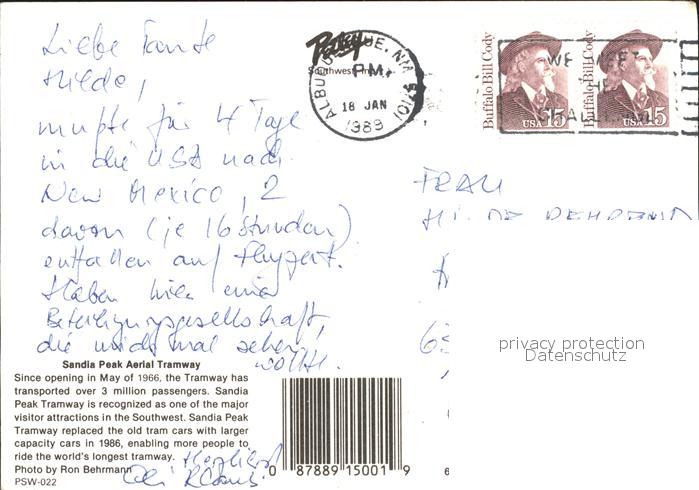 Liebe Tante
Hilde,
mußte für 4 Tage
in die USA nach
New Mexico, 2
davon (je 16 Stunden)
entfallen auf Flugzeit.
Haben hier eine
Beteiligungsgesellschaft,
die mich mal sehen
wollte.
Herzlichst
Klaus
Petley
Southwest
ALBUQUERQUE, NM 87101
PM
18 JAN
1989
WE MEET
THE
Buffalo Bill Cody
USA 15
Buffalo Bill Cody
USA 15
FRAU
HILDE
privacy protection
Datenschutz
Sandia Peak Aerial Tramway
Since opening in May of 1966, the Tramway has
transported over 3 million passengers. Sandia
Peak Tramway is recognized as one of the major
visitor attractions in the Southwest. Sandia Peak
Tramway replaced the old tram cars with larger
capacity cars in 1986, enabling more people to
ride the world's longest tramway.
Photo by Ron Behrmann
PSW-022
0 87889 15001 9
6